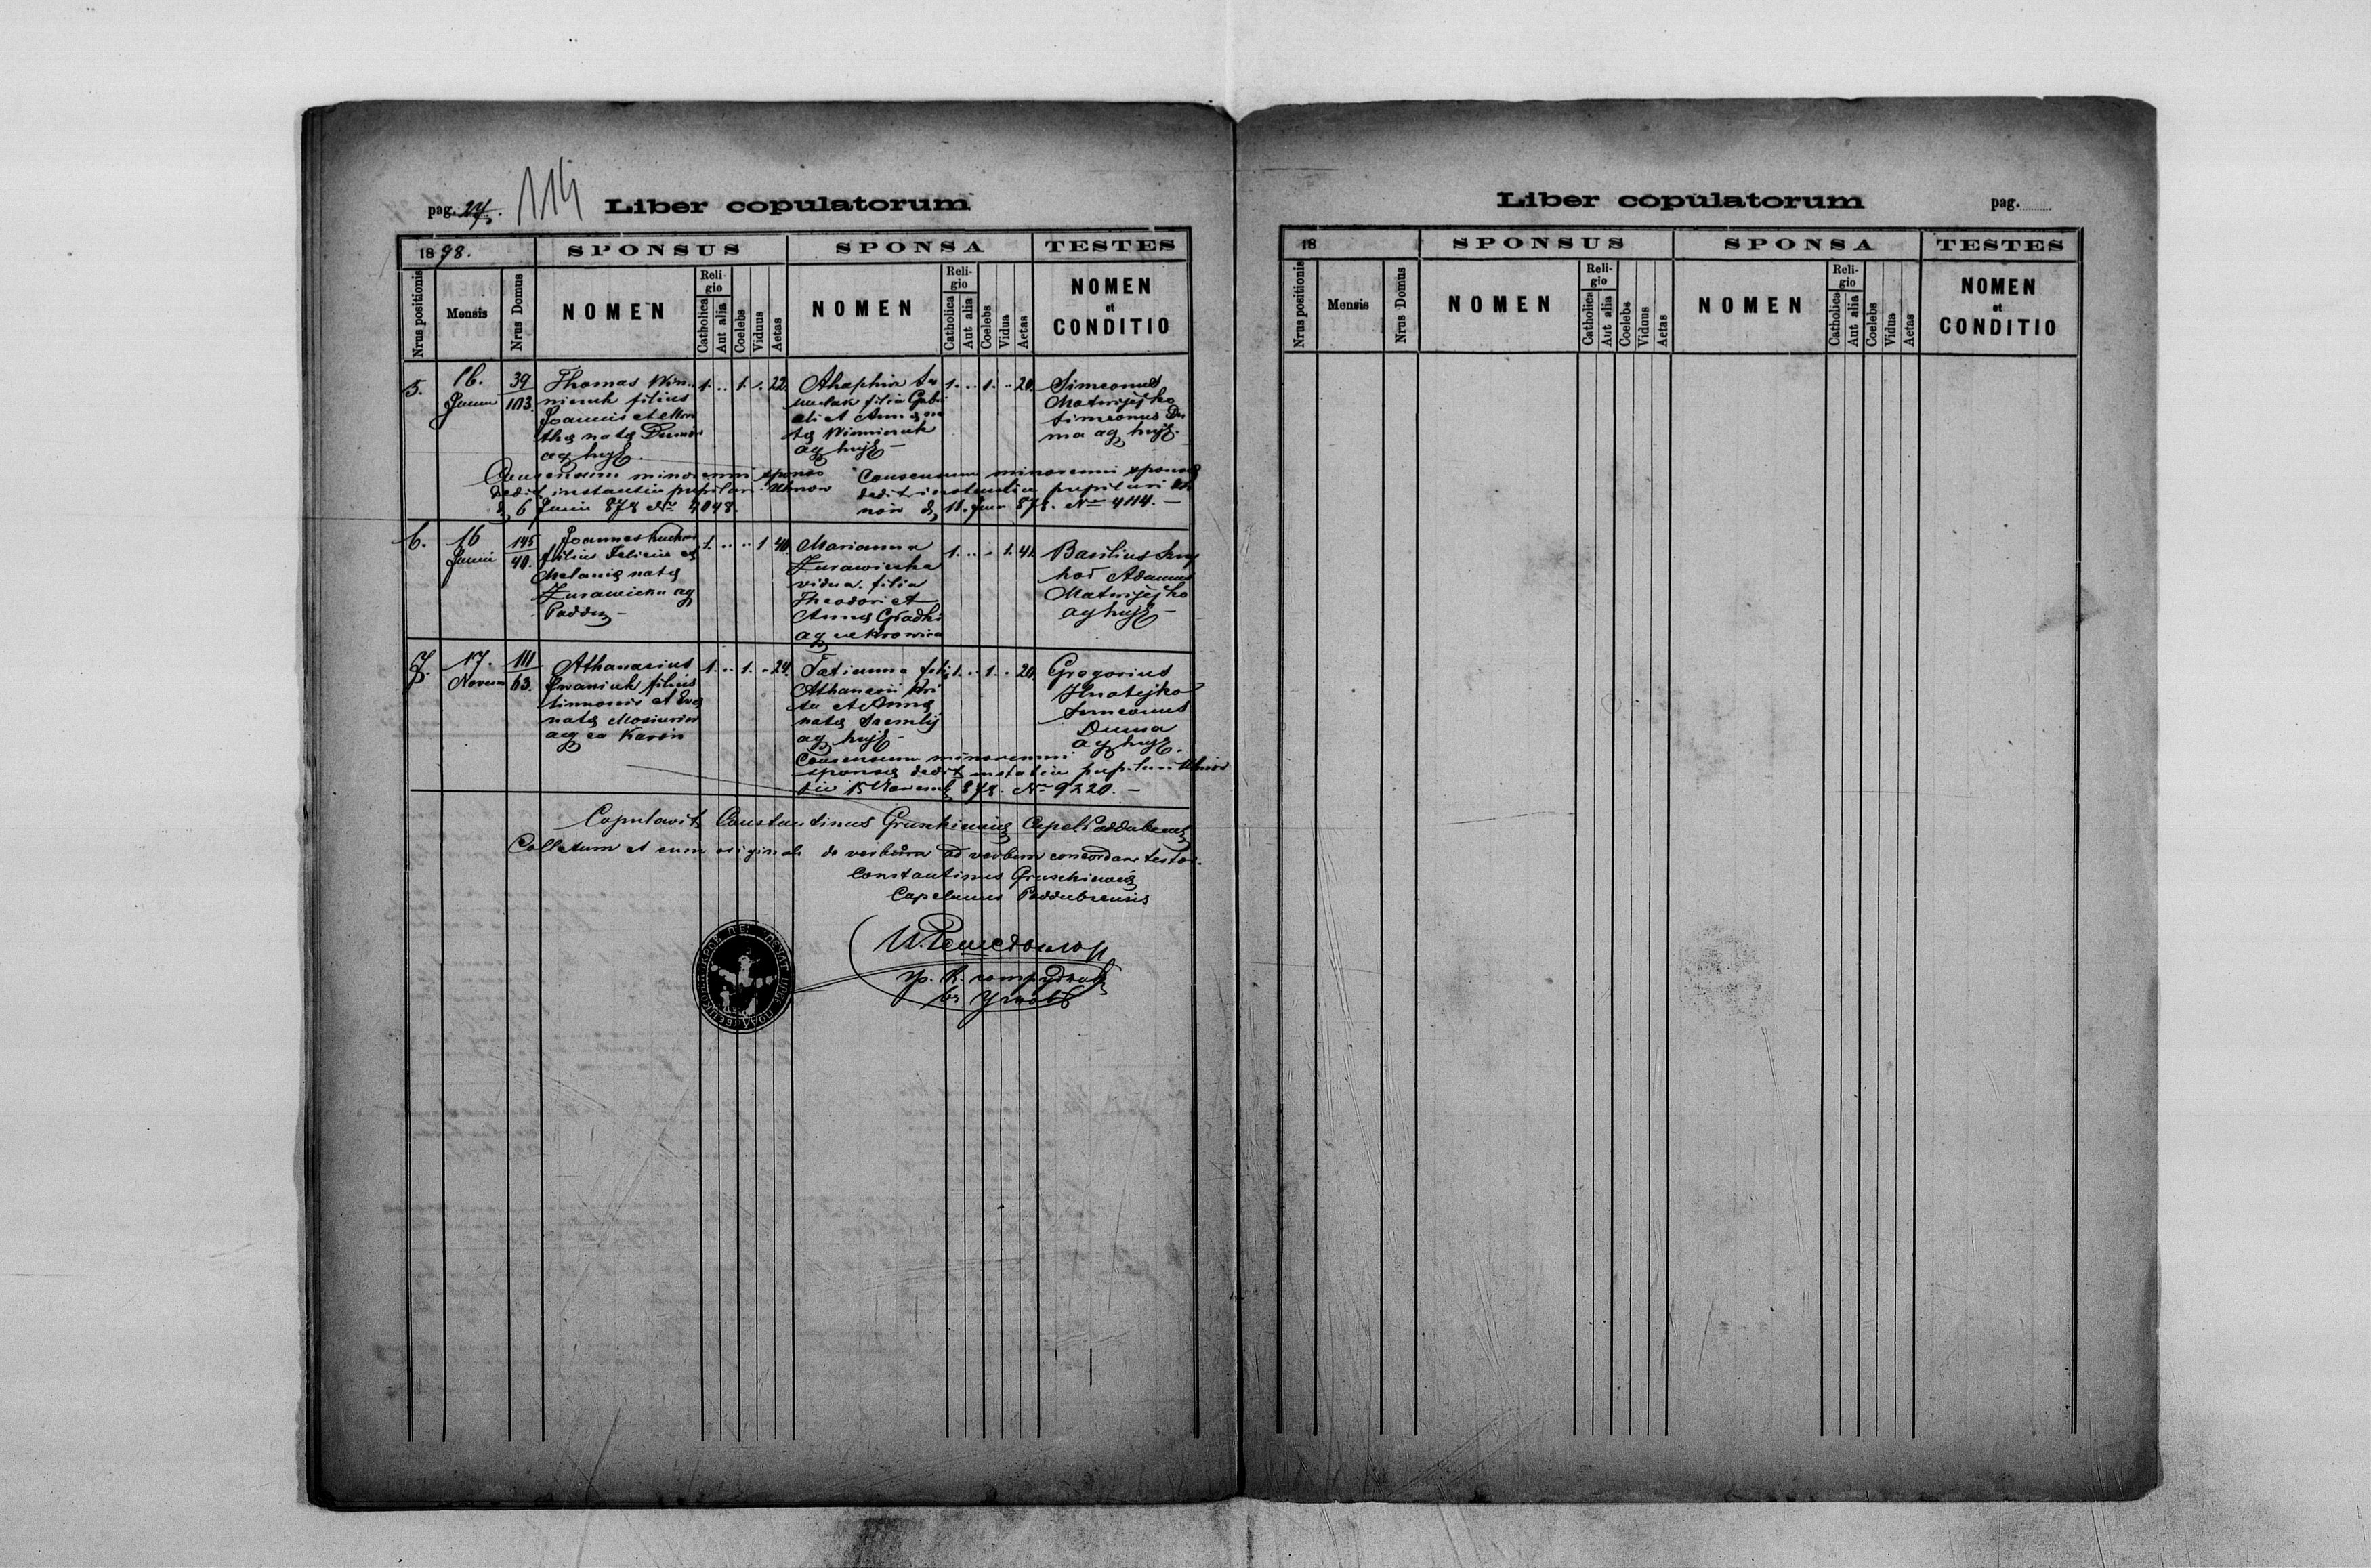 pag. 27. 114 Liber copulatorum
1898.
SPONSUS
SPONSA
TESTES
Nrus positionis
Mensis
Nrus Domus
NOMEN
Religio
Catholica
Aut alia
Coelebs
Viduus
Aetas
NOMEN
Religio
Catholica
Aut alia
Coelebs
Vidua
Aetas
NOMEN
et
CONDITIO
5.
16.
Junii
39
103.
Thomas
filius
Joannis et
tha nata
ag huj
1. .. 1. . 22
Ahaphia
filia Gabri
eli et Anna
ta Winniczuk
ag huj
1. .. 1. .. 20.
Simeonus
Matwijejko
Simeonus Du
ma ag huj.
Consensum minorenni sponso
dedit instantia pupilari Uhnow
d 6 Junii 878 Nr 4048.
Consensum minorenni sponsa
dedit instantia pupilari Uh
nów d 11. Juni 878. Nr 4114. —
6.
16
Junii
145
40.
Joannes
filius Felicis et
Melania nata
Zurawiecka ag
Paddu
1. .. .. 1 40
Marianna
Zurawiecka
vidua filia
Theodori et
Anna Gladki
ag
1. .. . 1. 41.
Basilius
Adamus
Matwijejko
ag huj
7.
17.
Novem
111
63.
Athanasius
Iwaniuk filius
et Eva
nata
ag ex Karów
1. .. 1. . 24.
Tatianna fili
Athanasii
et Anna
nata
ag huj
1. .. 1. . 20.
Gregorius
Hnatejko
Simeonus
Duma
ag huj.
Consensum minorenni
sponsa dedit instatia pupilari Uhnow
die 15 Novemb 878. Nr 9220. —
Copulavit Constantinus Capel Paddubens
Colletum et cum originali de verbum ad verbum concordare testor.
Constantinus
Capelanus Paddubcensis
въ Угновѣ
Liber copulatorum
pag.
18
SPONSUS
SPONSA
TESTES
Nrus positionis
Mensis
Nrus Domus
NOMEN
Religio
Catholica
Aut alia
Coelebs
Viduus
Aetas
NOMEN
Religio
Catholica
Aut alia
Coelebs
Vidua
Aetas
NOMEN
et
CONDITIO